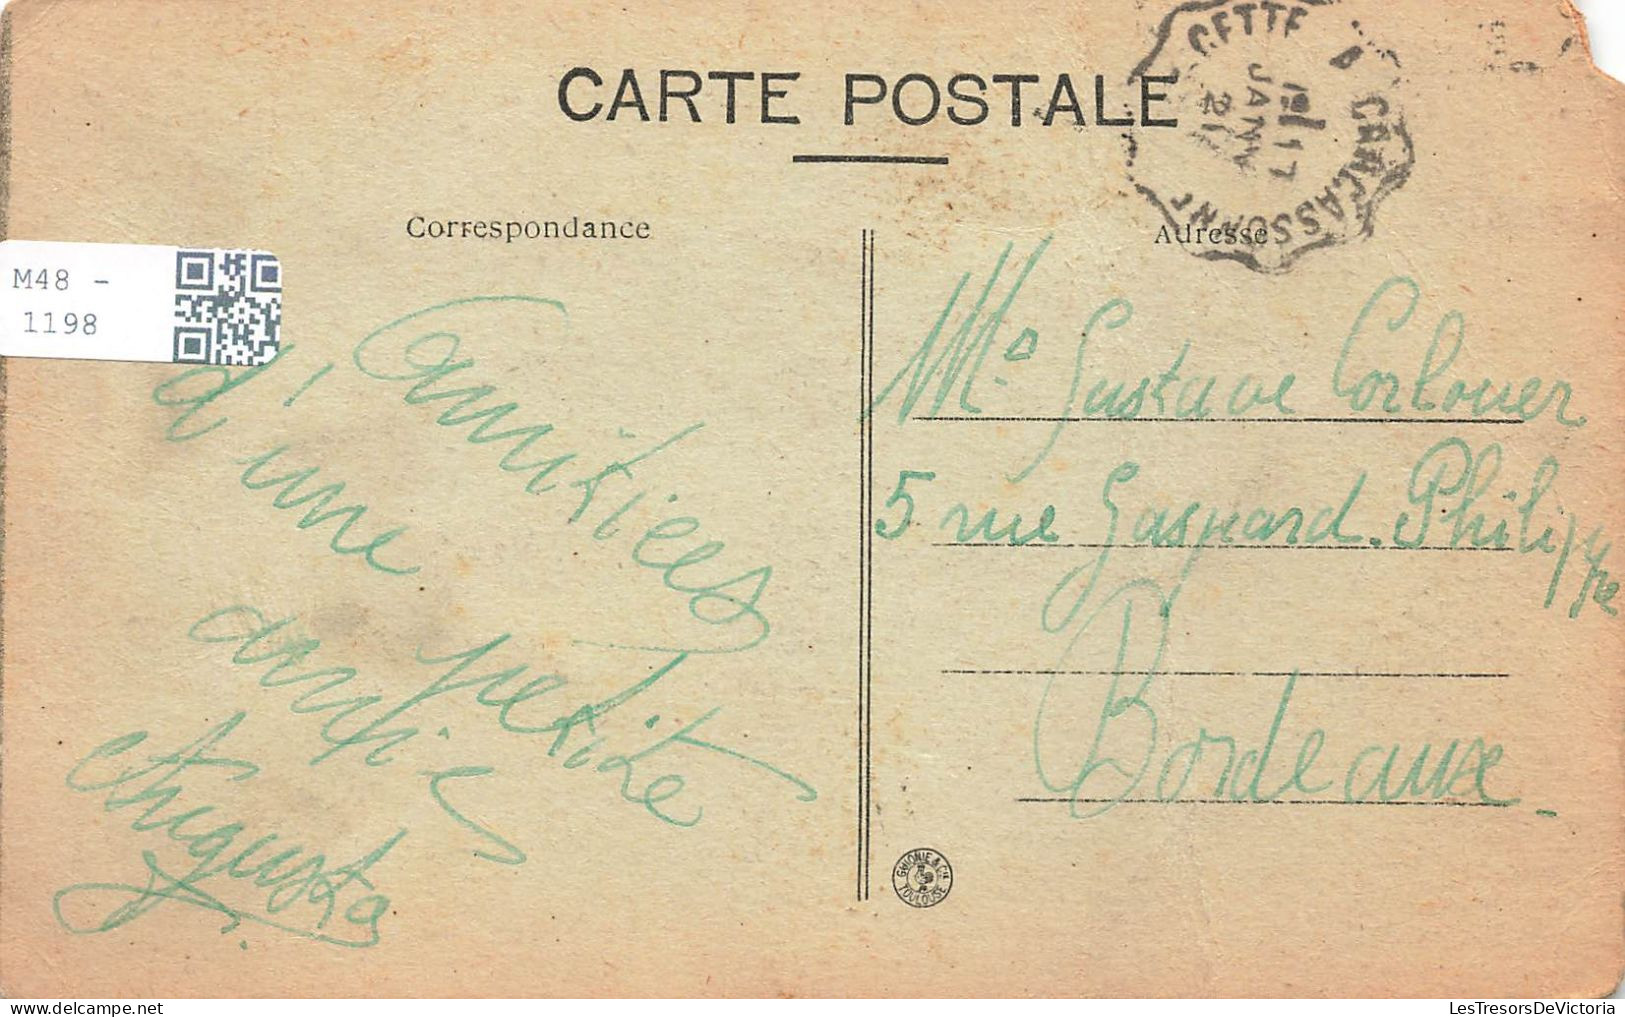 CARTE POSTALE
CETTE A CARCASSONNE
17
JANV
Correspondance
Adresse
M48 -
1198
Amitiées
d'une petite
amie
Augusta
Mr Gustave
5 rue Gaspard. Philippe
Bordeaux
GHIONIE & Cie
TOULOUSE
LesTresorsDeVictoria